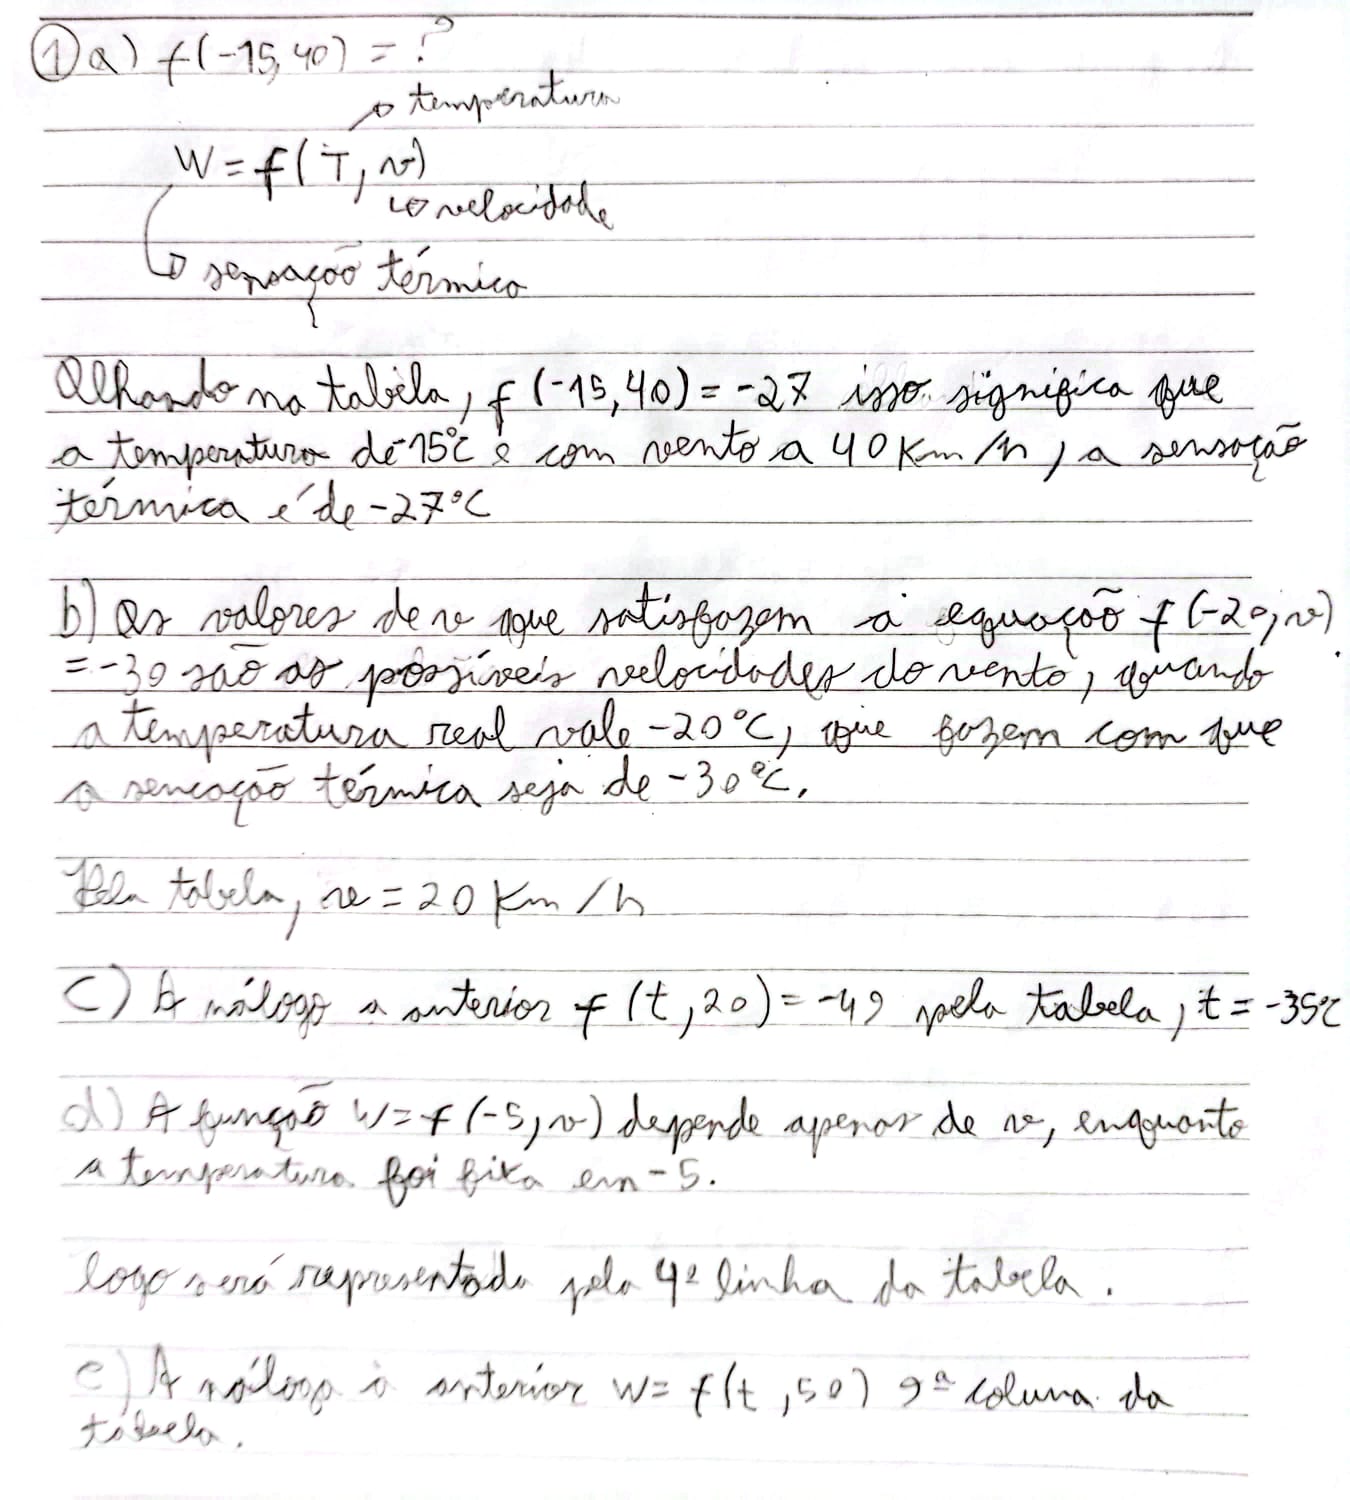 1 a) f(-15,40) = ?
temperatura
W = f(T, v)
velocidade
sensação térmica
Olhando na tabela, f(-15,40) = -27 isso significa que
a temperatura de -15°C e com vento a 40 Km/h, a sensação
térmica é de -27°C
b) Os valores de v que satisfazem a equação f(-20, v)
= -30 são as possíveis velocidades do vento, quando
a temperatura real vale -20°C, que fazem com que
a sencação térmica seja de -30°C.
Pela tabela, v = 20 Km/h
C) Análogo a anterior f(t, 20) = -49 pela tabela, t = -35°C
d) A função W = f(-5, v) depende apenas de v, enquanto
a temperatura foi fixa em -5.
logo será representada pela 4ª linha da tabela.
e) Análogo à anterior W = f(t, 50) 9ª coluna da
tabela.